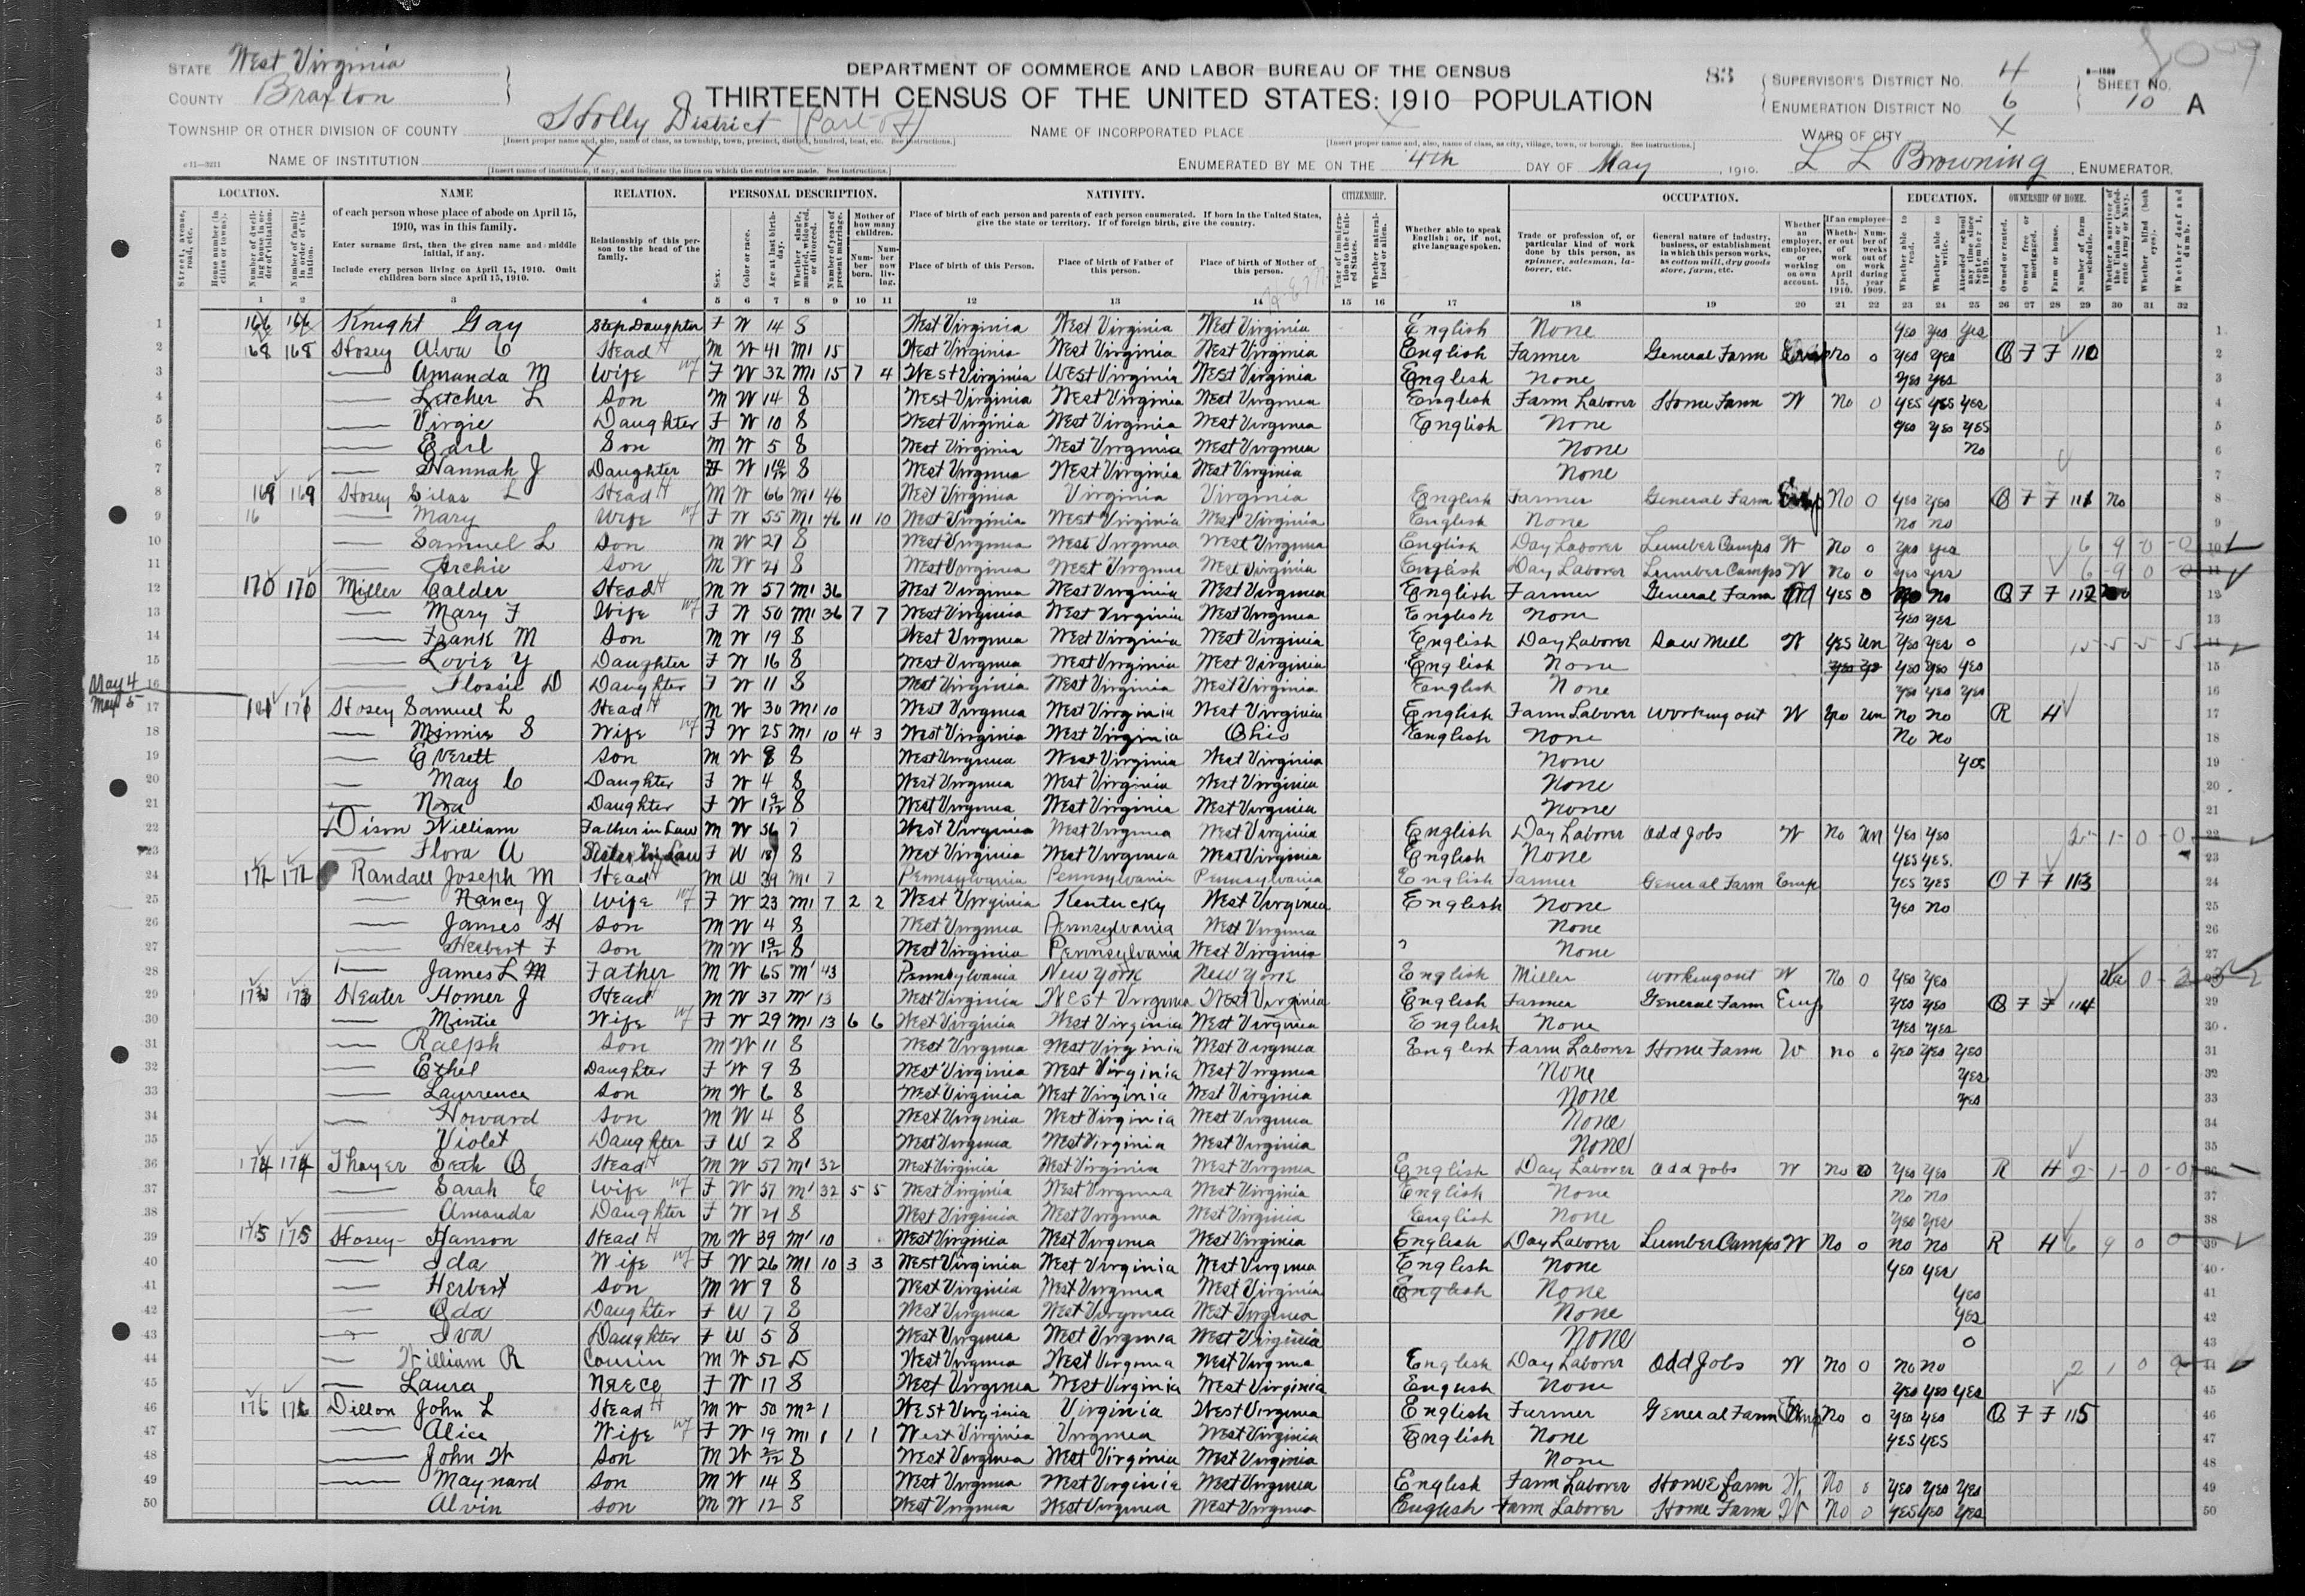 STATE West Virginia
COUNTY Braxton
DEPARTMENT OF COMMERCE AND LABOR—BUREAU OF THE CENSUS
THIRTEENTH CENSUS OF THE UNITED STATES: 1910—POPULATION
83
SUPERVISOR'S DISTRICT NO. 4
ENUMERATION DISTRICT NO. 6
SHEET NO. 10 A
TOWNSHIP OR OTHER DIVISION OF COUNTY Holly District (Part of)
NAME OF INCORPORATED PLACE X
WARD OF CITY X
NAME OF INSTITUTION X
ENUMERATED BY ME ON THE 4th DAY OF May, 1910. L L Browning, ENUMERATOR.
LOCATION. NAME RELATION. PERSONAL DESCRIPTION. NATIVITY. CITIZENSHIP. OCCUPATION. EDUCATION. OWNERSHIP OF HOME.
of each person whose place of abode on April 15, 1910, was in this family.
Enter surname first, then the given name and middle initial, if any.
Include every person living on April 15, 1910. Omit children born since April 15, 1910.
Relationship of this person to the head of the family.
Place of birth of each person and parents of each person enumerated. If born in the United States, give the state or territory. If of foreign birth, give the country.
Place of birth of this Person. Place of birth of Father of this person. Place of birth of Mother of this person.
Whether able to speak English; or, if not, give language spoken.
Trade or profession of, or particular kind of work done by this person, as spinner, salesman, laborer, etc.
General nature of industry, business, or establishment in which this person works, as cotton mill, dry goods store, farm, etc.
1 2 3 4 5 6 7 8 9 10 11 12 13 14 15 16 17 18 19 20 21 22 23 24 25 26 27 28 29 30 31 32
1 166 166 Knight Gay Step Daughter F W 14 S West Virginia West Virginia West Virginia English None yes yes yes 1
2 168 168 Hosey Alva C Head M W 41 M1 15 West Virginia West Virginia West Virginia English Farmer General Farm no 0 yes yes O F F 110 2
3 Amanda M Wife F W 32 M1 15 7 4 West Virginia West Virginia West Virginia English None yes yes 3
4 Letcher L Son M W 14 S West Virginia West Virginia West Virginia English Farm Laborer Home Farm W No 0 yes yes yes 4
5 Virgie Daughter F W 10 S West Virginia West Virginia West Virginia English None yes yes yes 5
6 Earl Son M W 5 S West Virginia West Virginia West Virginia None no 6
7 Hannah J Daughter F W S West Virginia West Virginia West Virginia None 7
8 169 169 Hosey Silas L Head M W 66 M1 46 West Virginia Virginia Virginia English Farmer General Farm Emp No 0 yes yes O F F 111 no 8
9 16 Mary Wife F W 55 M1 46 11 10 West Virginia West Virginia West Virginia English None no no 9
10 Samuel L Son M W 27 S West Virginia West Virginia West Virginia English Day Laborer Lumber Camps W No 0 yes yes 6 9 0 0 10
11 Archie Son M W 21 S West Virginia West Virginia West Virginia English Day Laborer Lumber Camps W No 0 yes yes 6 9 0 0 11
12 170 170 Miller Calder Head M W 57 M1 36 West Virginia West Virginia West Virginia English Farmer General Farm yes 0 no no O F F 112 12
13 Mary F Wife F W 50 M1 36 7 7 West Virginia West Virginia West Virginia English None yes yes 13
14 Frank M Son M W 19 S West Virginia West Virginia West Virginia English Day Laborer Saw Mill W yes un yes yes 0 15 5 5 5 14
15 Lovie Y Daughter F W 16 S West Virginia West Virginia West Virginia English None yes yes yes 15
May 4
16 Flossie D Daughter F W 11 S West Virginia West Virginia West Virginia English None yes yes yes 16
May 5
17 171 171 Hosey Samuel L Head M W 30 M1 10 West Virginia West Virginia West Virginia English Farm Laborer Working out W un no no R H 17
18 Minnie S Wife F W 25 M1 10 4 3 West Virginia West Virginia Ohio English None no no 18
19 Everett Son M W 8 S West Virginia West Virginia West Virginia None yes 19
20 May C Daughter F W 4 S West Virginia West Virginia West Virginia None 20
21 Nora Daughter F W S West Virginia West Virginia West Virginia None 21
22 Dison William Father in Law M W 56 West Virginia West Virginia West Virginia English Day Laborer Odd Jobs W No un yes yes 2 1 0 0 22
23 Flora A Sister in Law F W 18 S West Virginia West Virginia West Virginia English None yes yes 23
24 172 172 Randall Joseph M Head M W 39 M1 7 Pennsylvania Pennsylvania Pennsylvania English Farmer General Farm Emp yes yes O F F 113 24
25 Nancy J Wife F W 23 M1 7 2 2 West Virginia Kentucky West Virginia English None yes no 25
26 James H Son M W 4 S West Virginia Pennsylvania West Virginia None 26
27 Herbert F Son M W S West Virginia Pennsylvania West Virginia None 27
28 James L M Father M W 65 M1 43 Pennsylvania New York New York English Miller working out W No 0 yes yes 28
29 173 173 Heater Homer J Head M W 37 M1 13 West Virginia West Virginia West Virginia English Farmer General Farm Emp yes yes O F F 114 29
30 Mintie Wife F W 29 M1 13 6 6 West Virginia West Virginia West Virginia English None yes yes 30
31 Ralph Son M W 11 S West Virginia West Virginia West Virginia English Farm Laborer Home Farm W no 0 yes yes yes 31
32 Ethel Daughter F W 9 S West Virginia West Virginia West Virginia None yes 32
33 Lawrence Son M W 6 S West Virginia West Virginia West Virginia None yes 33
34 Howard Son M W 4 S West Virginia West Virginia West Virginia None 34
35 Violet Daughter F W 2 S West Virginia West Virginia West Virginia None 35
36 174 174 Thayer Seth O Head M W 57 M1 32 West Virginia West Virginia West Virginia English Day Laborer Odd Jobs W no 0 yes yes R H 2 1 0 0 36
37 Sarah E Wife F W 57 M1 32 5 5 West Virginia West Virginia West Virginia English None no no 37
38 Amanda Daughter F W 21 S West Virginia West Virginia West Virginia English None yes yes 38
39 175 175 Hosey Hanson Head M W 39 M1 10 West Virginia West Virginia West Virginia English Day Laborer Lumber Camps W No 0 no no R H 6 9 0 0 39
40 Ida Wife F W 26 M1 10 3 3 West Virginia West Virginia West Virginia English None yes yes 40
41 Herbert Son M W 9 S West Virginia West Virginia West Virginia English None yes 41
42 Oda Daughter F W 7 S West Virginia West Virginia West Virginia None yes 42
43 Iva Daughter F W 5 S West Virginia West Virginia West Virginia None 0 43
44 William R Cousin M W 52 D West Virginia West Virginia West Virginia English Day Laborer Odd Jobs W no 0 no no 2 1 0 44
45 Laura Neece F W 17 S West Virginia West Virginia West Virginia English None yes yes yes 45
46 176 176 Dillon John L Head M W 50 M2 1 West Virginia Virginia West Virginia English Farmer General Farm Emp No 0 yes yes O F F 115 46
47 Alice Wife F W 19 M1 1 1 1 West Virginia Virginia West Virginia English None yes yes 47
48 John W Son M W 2/12 S West Virginia West Virginia West Virginia None 48
49 Maynard Son M W 14 S West Virginia West Virginia West Virginia English Farm Laborer Home farm W No 0 yes yes yes 49
50 Alvin Son M W 12 S West Virginia West Virginia West Virginia English Farm Laborer Home Farm W No 0 yes yes yes 50